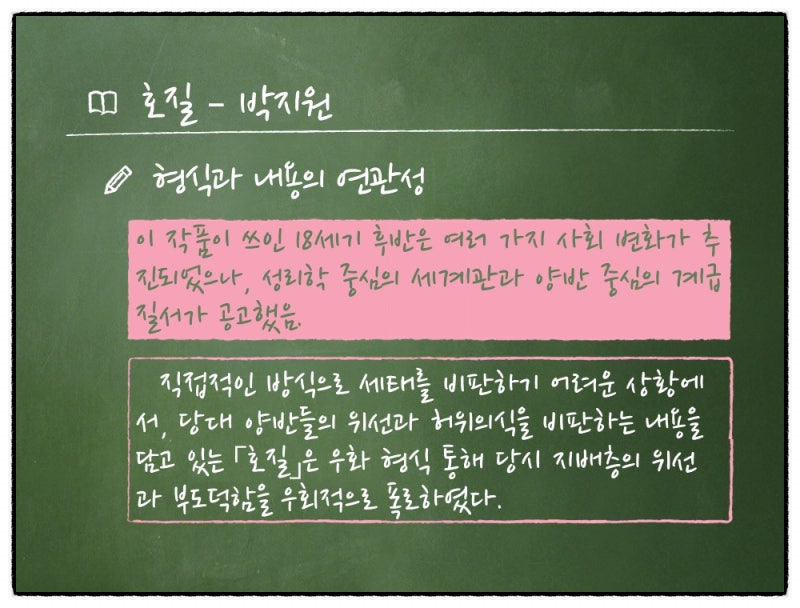 호질 - 박지원
형식과 내용의 연관성
이 작품이 쓰인 18세기 후반은 여러 가지 사회 변화가 추
진되었으나, 성리학 중심의 세계관과 양반 중심의 계급
질서가 공고했음.
직접적인 방식으로 세태를 비판하기 어려운 상황에
서, 당대 양반들의 위선과 허위의식을 비판하는 내용을
담고 있는 「호질」은 우화 형식 통해 당시 지배층의 위선
과 부도덕함을 우회적으로 폭로하였다.